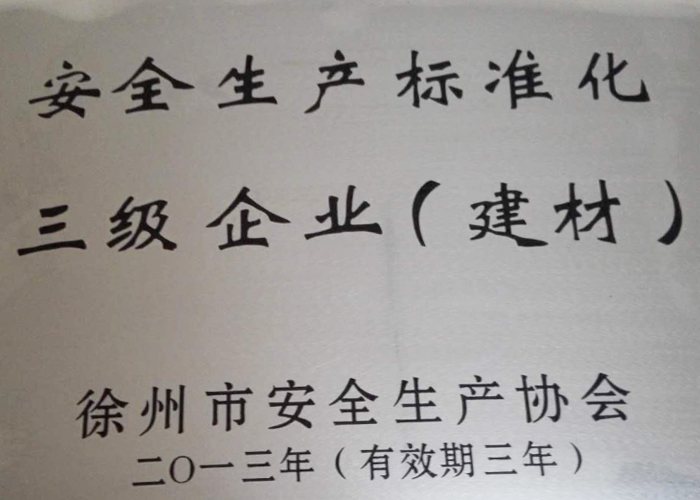 安全生产标准化
三级企业(建材)
徐州市安全生产协会
二O一三年(有效期三年)